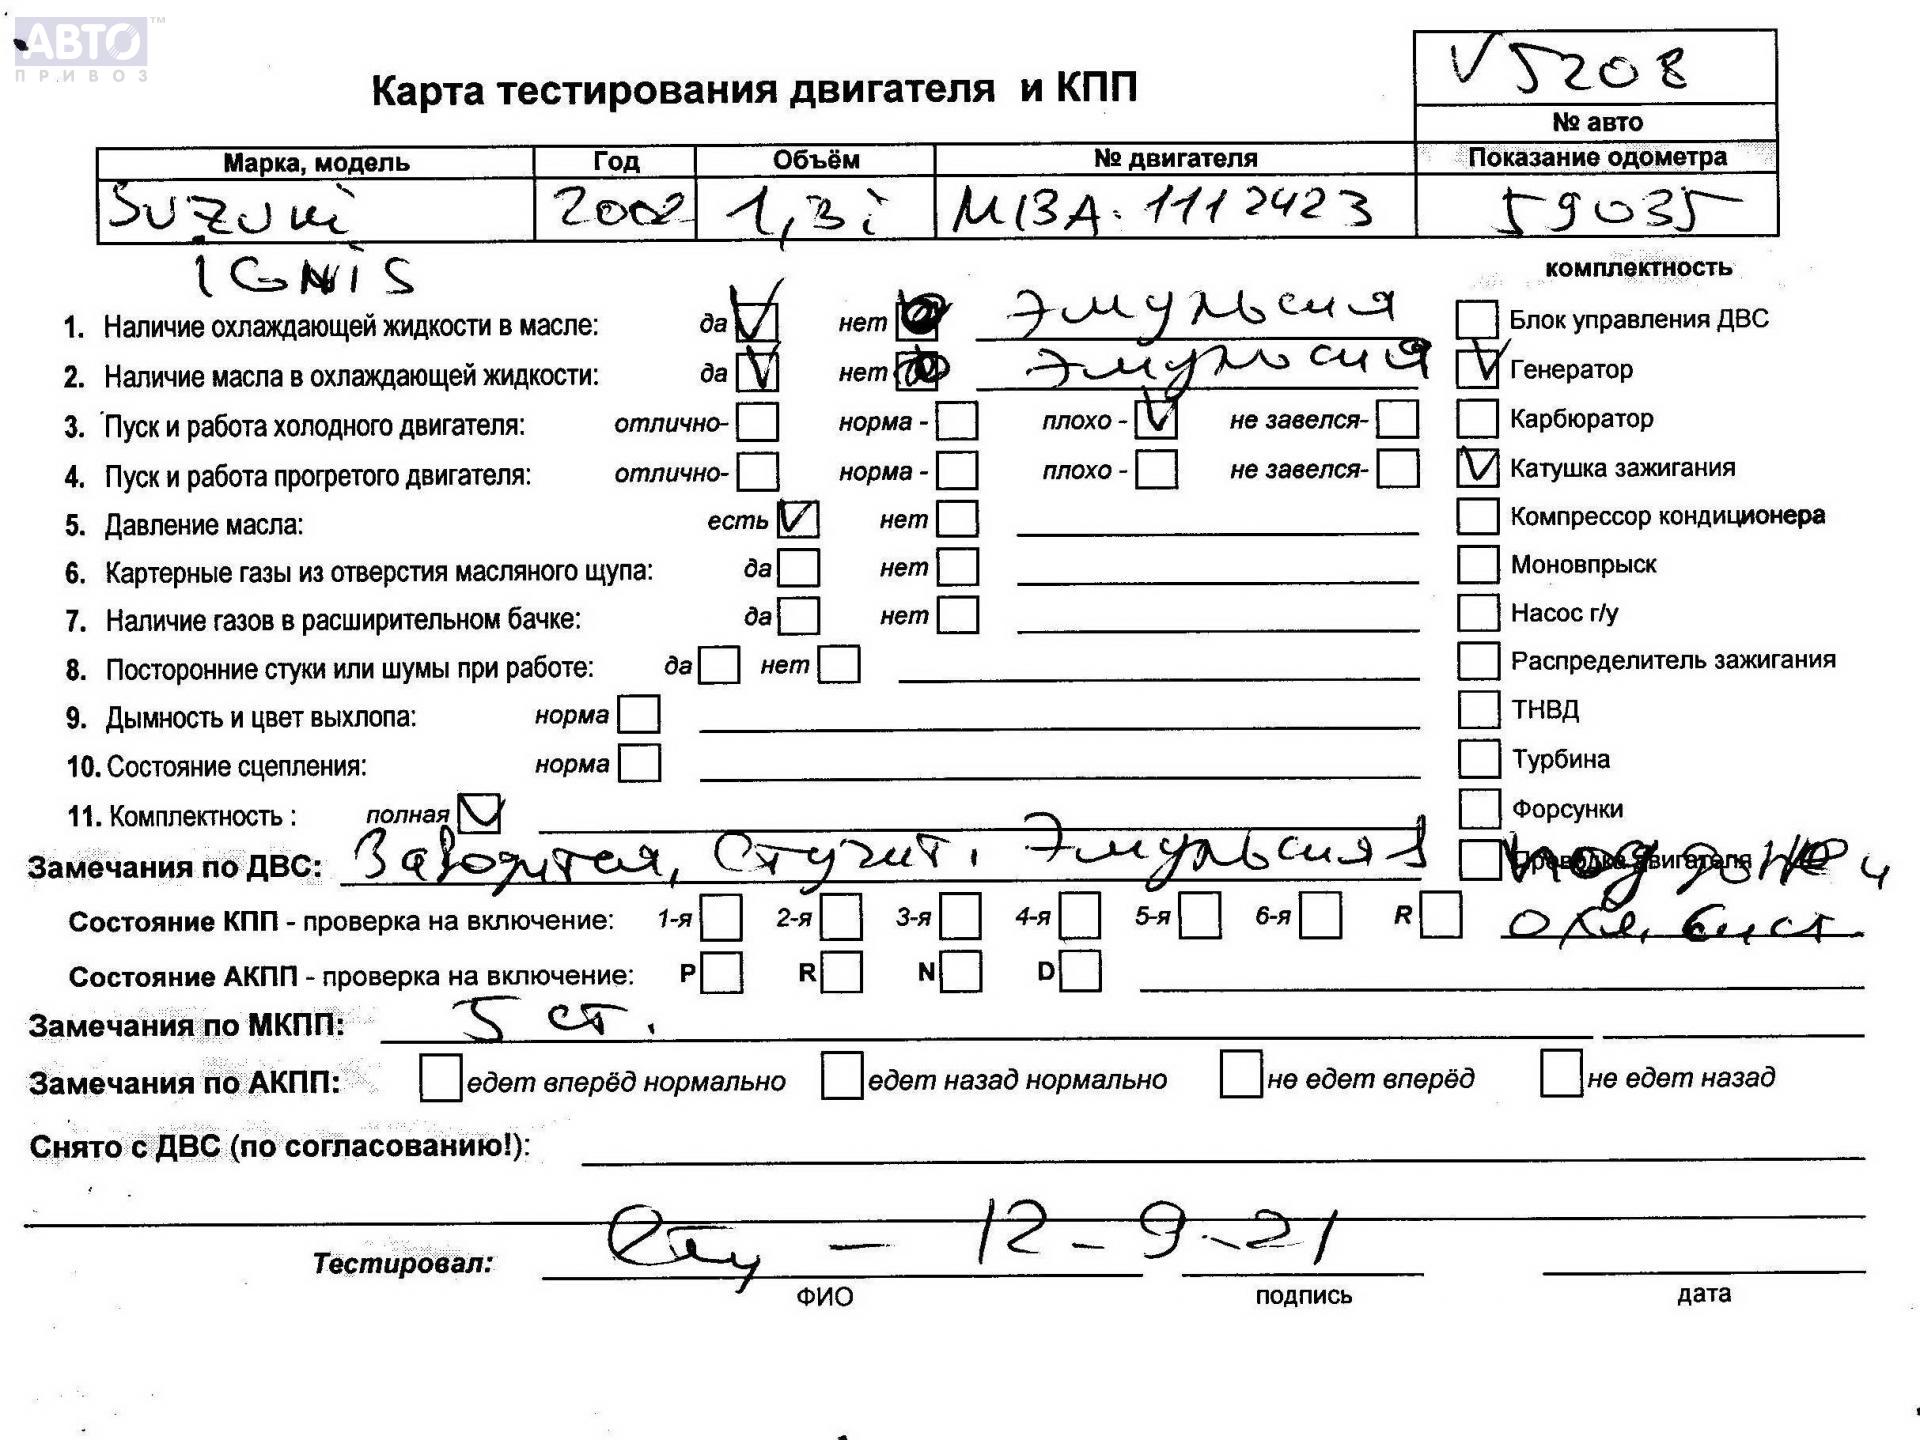 АВТО™
ПРИВОЗ
V5208
Карта тестирования двигателя и КПП
№ авто
Марка, модель Год Объём № двигателя Показание одометра
Suzuki 2002 1,3i M13A. 1112423 59035
IGNIS
комплектность
1. Наличие охлаждающей жидкости в масле: да нет Эмульсия
Блок управления ДВС
2. Наличие масла в охлаждающей жидкости: да нет Эмульсия
Генератор
3. Пуск и работа холодного двигателя: отлично- норма - плохо - не завелся-
Карбюратор
4. Пуск и работа прогретого двигателя: отлично- норма - плохо - не завелся-
Катушка зажигания
5. Давление масла: есть нет
Компрессор кондиционера
6. Картерные газы из отверстия масляного щупа: да нет
Моновпрыск
7. Наличие газов в расширительном бачке: да нет
Насос г/у
8. Посторонние стуки или шумы при работе: да нет
Распределитель зажигания
9. Дымность и цвет выхлопа: норма
ТНВД
10. Состояние сцепления: норма
Турбина
11. Комплектность : полная
Форсунки
Замечания по ДВС: Заводится, Стучит. Эмульсия в поддоне и
Проводка двигателя
охл. сист.
Состояние КПП - проверка на включение: 1-я 2-я 3-я 4-я 5-я 6-я R
Состояние АКПП - проверка на включение: P R N D
Замечания по МКПП: 5 ст.
Замечания по АКПП: едет вперёд нормально едет назад нормально не едет вперёд не едет назад
Снято с ДВС (по согласованию!):
Тестировал: – 12-9-21
ФИО подпись дата